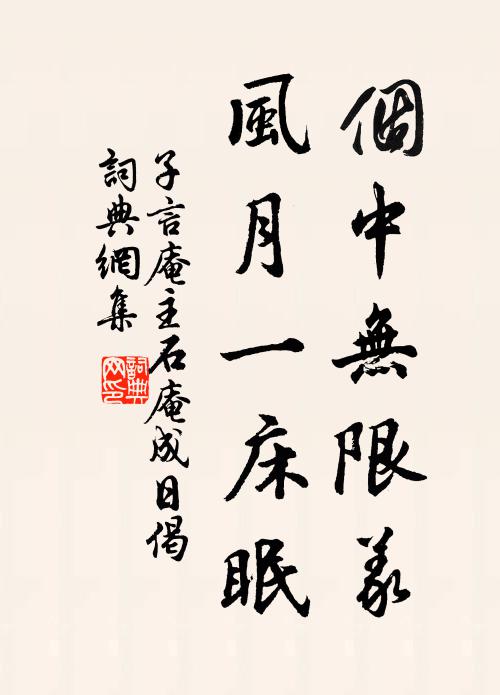 個中無限義
風月一床眠
子言庵主石庵成日偈
詞典網集
詞典
网印